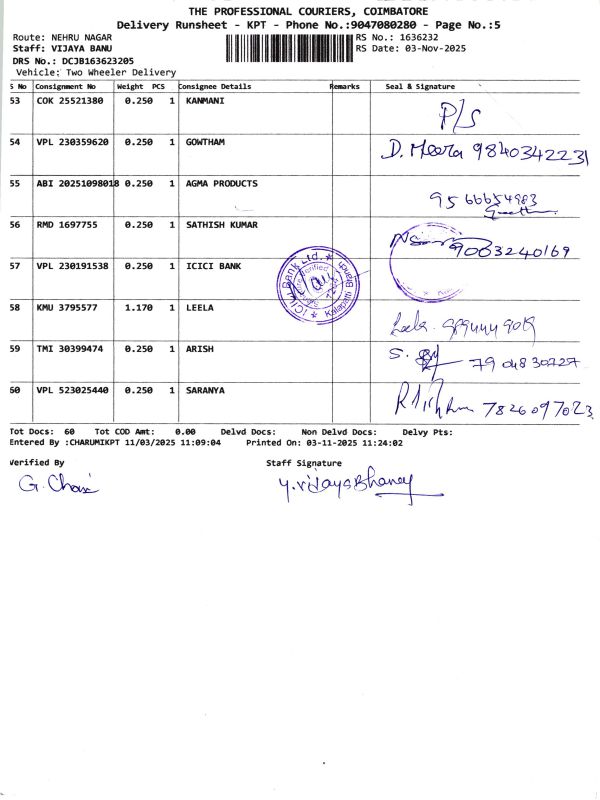 THE PROFESSIONAL COURIERS, COIMBATORE
Delivery Runsheet - KPT - Phone No.:9047080280 - Page No.:5
Route: NEHRU NAGAR RS No.: 1636232
Staff: VIJAYA BANU RS Date: 03-Nov-2025
DRS No.: DCJB163623205
Vehicle: Two Wheeler Delivery
S No Consignment No Weight PCS Consignee Details Remarks Seal & Signature
53 COK 25521380 0.250 1 KANMANI P/S
54 VPL 230359620 0.250 1 GOWTHAM D. Meera 9840342231
55 ABI 20251098018 0.250 1 AGMA PRODUCTS 9566654983
56 RMD 1697755 0.250 1 SATHISH KUMAR 9003240169
57 VPL 230191538 0.250 1 ICICI BANK ICICI Bank Ltd. Kalapatti Branch
58 KMU 3795577 1.170 1 LEELA Leela
59 TMI 30399474 0.250 1 ARISH S.
60 VPL 523025440 0.250 1 SARANYA 7826097023
Tot Docs: 60 Tot COD Amt: 0.00 Delvd Docs: Non Delvd Docs: Delvy Pts:
Entered By :CHARUMIKPT 11/03/2025 11:09:04 Printed On: 03-11-2025 11:24:02
Verified By Staff Signature
G. Charu Y.VijayaBhaney